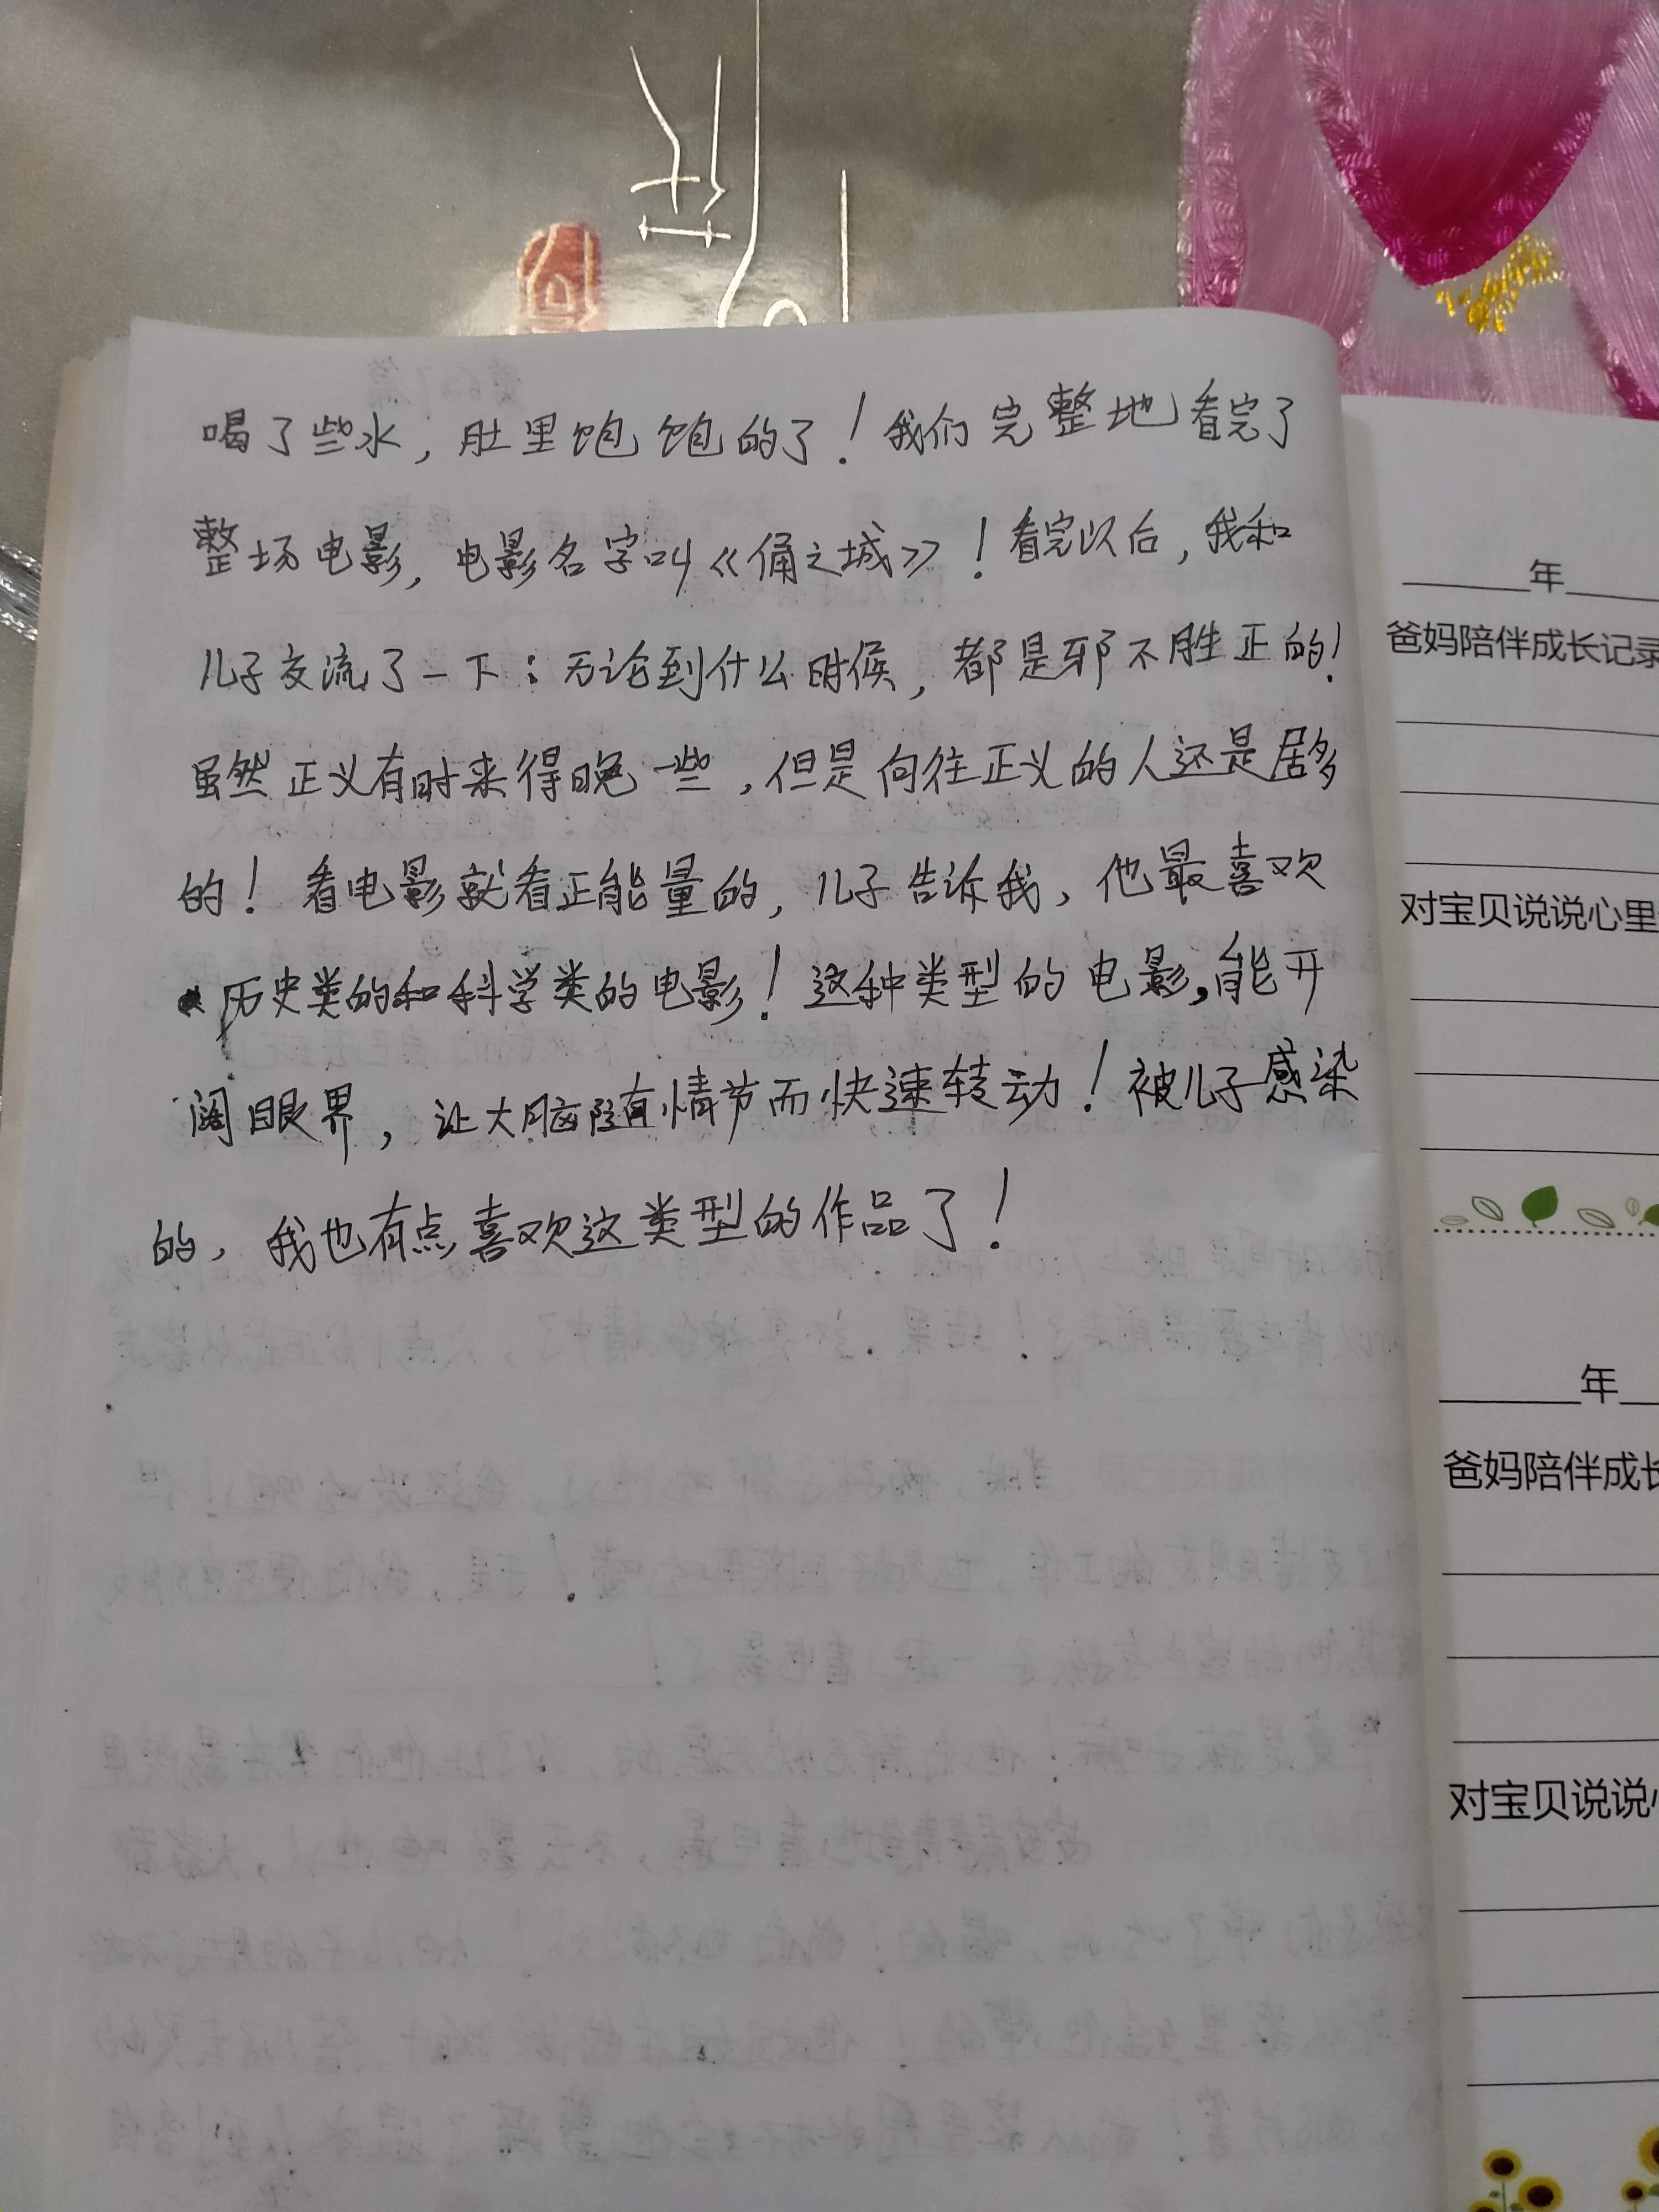 喝了些水，肚里饱饱的了！我们完整地看完了
整场电影，电影名字叫《俑之城》！看完以后，我和
儿子交流了一下：无论到什么时候，都是邪不胜正的！
虽然正义有时来得晚一些，但是向往正义的人还是居多
的！看电影就看正能量的，儿子告诉我，他最喜欢
历史类的和科学类的电影！这种类型的电影，能开
阔眼界，让大脑随着情节而快速转动！被儿子感染
的，我也有点喜欢这类型的作品了！
年
爸妈陪伴成长记录
对宝贝说说心里
年
爸妈陪伴成长
对宝贝说说